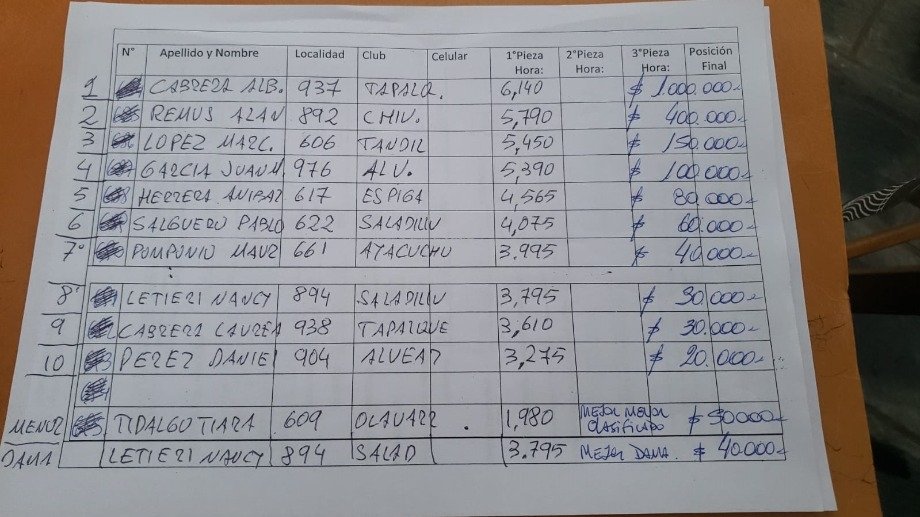 N° Apellido y Nombre Localidad Club Celular 1°Pieza Hora: 2°Pieza Hora: 3°Pieza Hora: Posición Final
1 CABRERA ALB. 937 TAPALQ. 6,140 $ 1000.000-
2 REMUS ALAN 892 CHIV. 5,790 $ 400.000-
3 LOPEZ MARC. 606 TANDIL 5,450 $ 150.000-
4 GARCIA JUAN M 976 ALV. 5,390 $ 100,000-
5 HERRERA ANIBAL 617 ESPIGA 4,565 $ 80,000-
6 SALGUERO PABLO 622 SALADILLO 4,075 $ 60.000-
7° POMPONIO MAUR 661 AYACUCHO 3.995 $ 40.000-
8° LETIERI NANCY 894 SALADILLO 3,795 $ 30.000-
9 CABRERA LAUREA 938 TAPALQUE 3,610 $ 30.000-
10 PEREZ DANIEL 904 ALVEAR 3,275 $ 20.000-
MENOR TIDALGO TIARA 609 OLAVARR. 1,980 MEJOR MENOR CLASIFICADO $ 50000-
DAMA LETIERI NANCY 894 SALAD 3.795 MEJOR DAMA. $ 40.000-